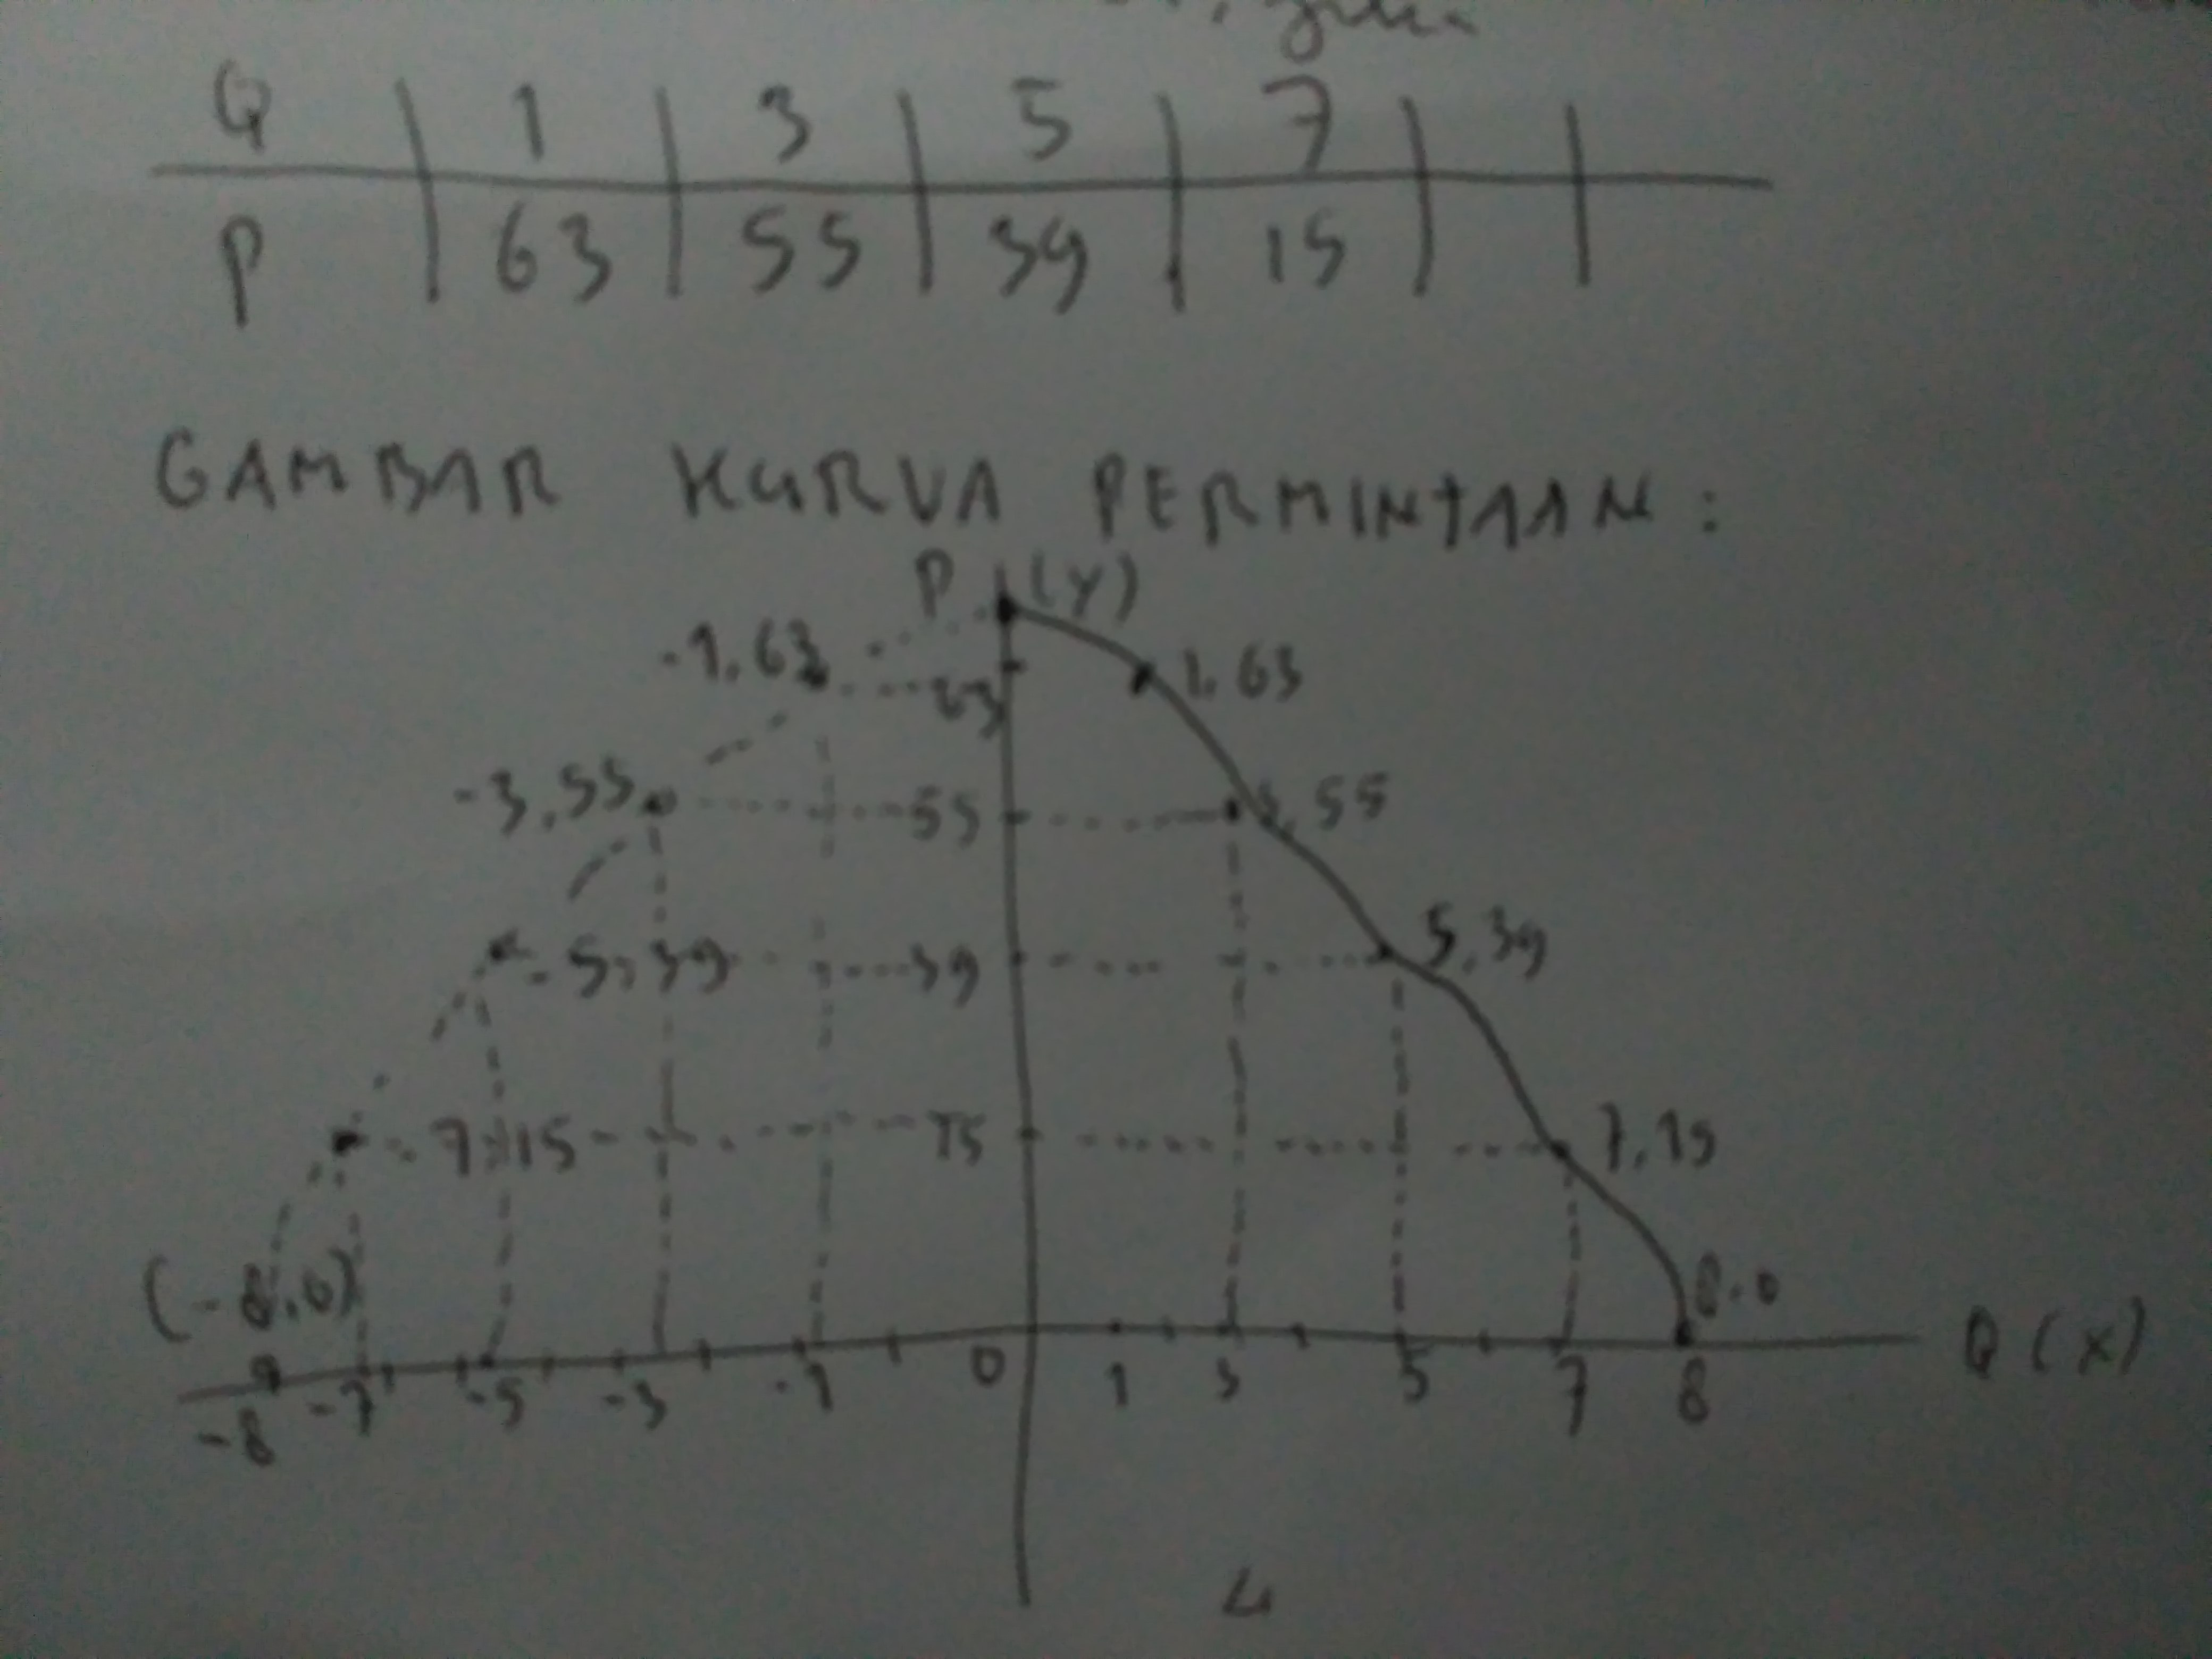 Q 1 3 5 7
P 63 55 39 15
GAMBAR KURVA PERMINTAAN :
P (Y)
-1,63 63 1,63
-3,55 55 3,55
-5,39 39 5,39
-7,15 15 7,15
(-8,0) 8.0
-8 -7 -5 -3 -1 0 1 3 5 7 8 Q (X)